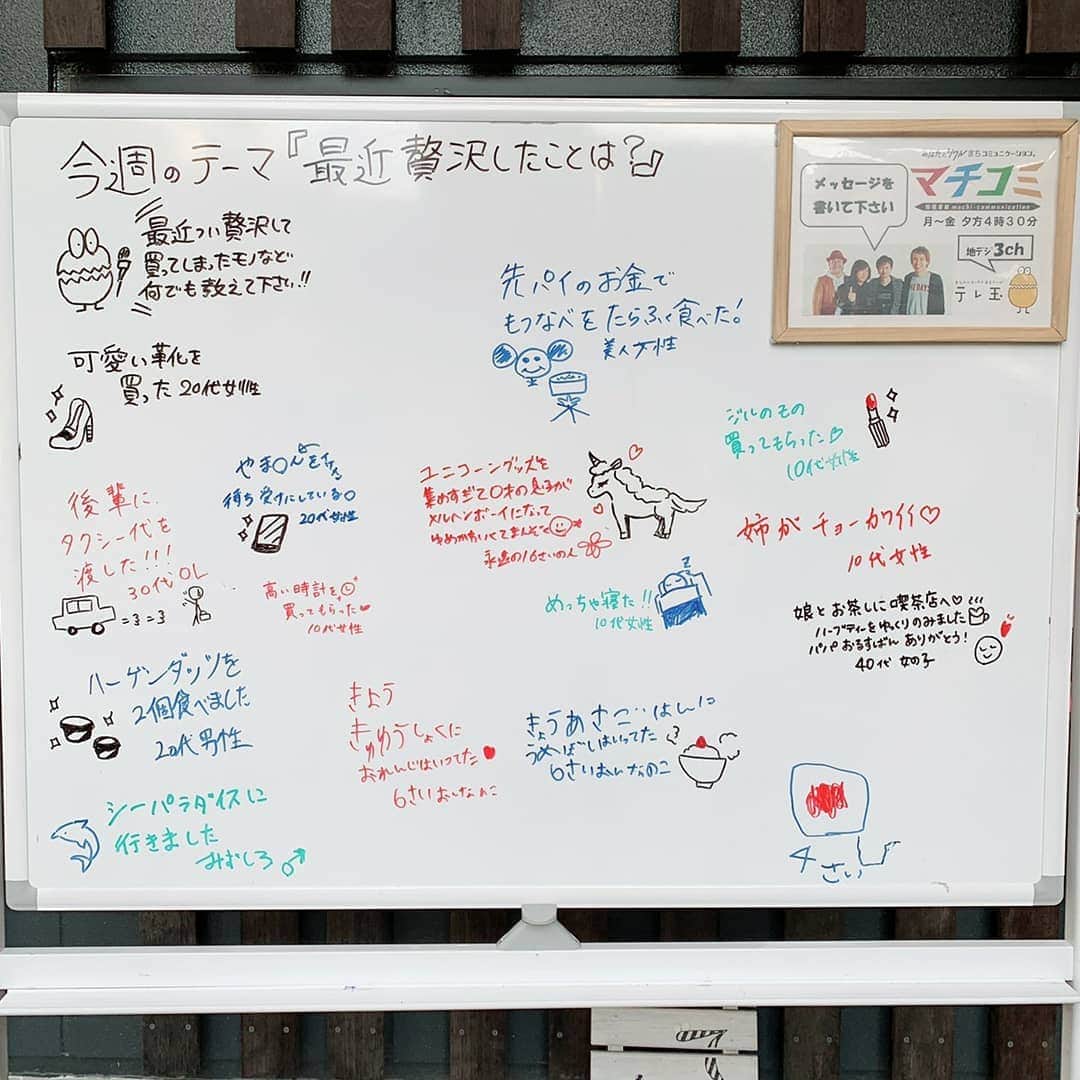 今週のテーマ『最近贅沢したことは?』
最近つい贅沢して
買ってしまったモノなど
何でも教えて下さい!!
まちコミュニケーション。
メッセージを
書いて下さい
マチコミ
machi-communication
月〜金 夕方4時30分
地デジ3ch
テレ玉
先パイのお金で
もつなべをたらふく食べた!
美人女性
可愛い靴を
買った 20代女性
ジルのもの
買ってもらった♡
10代女性
やま〇んを
待ち受けにしている〇
20代女性
ユニコーングッズを
集めすぎて0才の息子が
メルヘンボーイになって
ゆめかわいくてまんぞく
永遠の16さいの人
後輩に
タクシー代を
渡した!!!
30代OL
姉がチョーカワイイ♡
10代女性
高い時計を
買ってもらった♥
10代女性
めっちゃ寝た!!
10代女性
娘とお茶しに喫茶店へ♡
ハーブティーをゆっくりのみました
パパおるすばんありがとう!
40代 女の子
ハーゲンダッツを
2個食べました
20代男性
きょう
きゅうしょくに
おれんじはいってた
6さいおんなのこ
きょうあさごはんに
うめぼしはいってた
6さいおんなのこ
シーパラダイスに
行きました
みずしろ♂
4さい